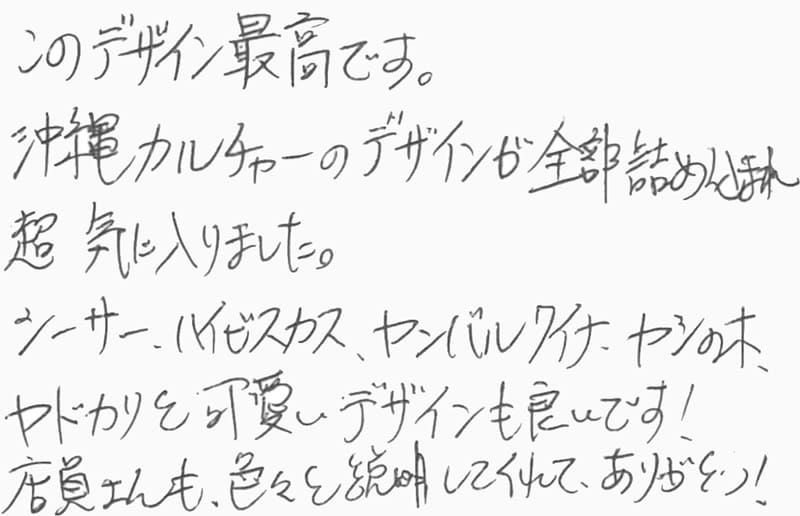 このデザイン最高です。
沖縄カルチャーのデザインが全部詰めこまれ
超 気に入りました。
シーサー、ハイビスカス、ヤンバルクイナ、ヤシの木、
ヤドカリと可愛いデザインも良いです！
店員さんも、色々と説明してくれて、ありがとう！